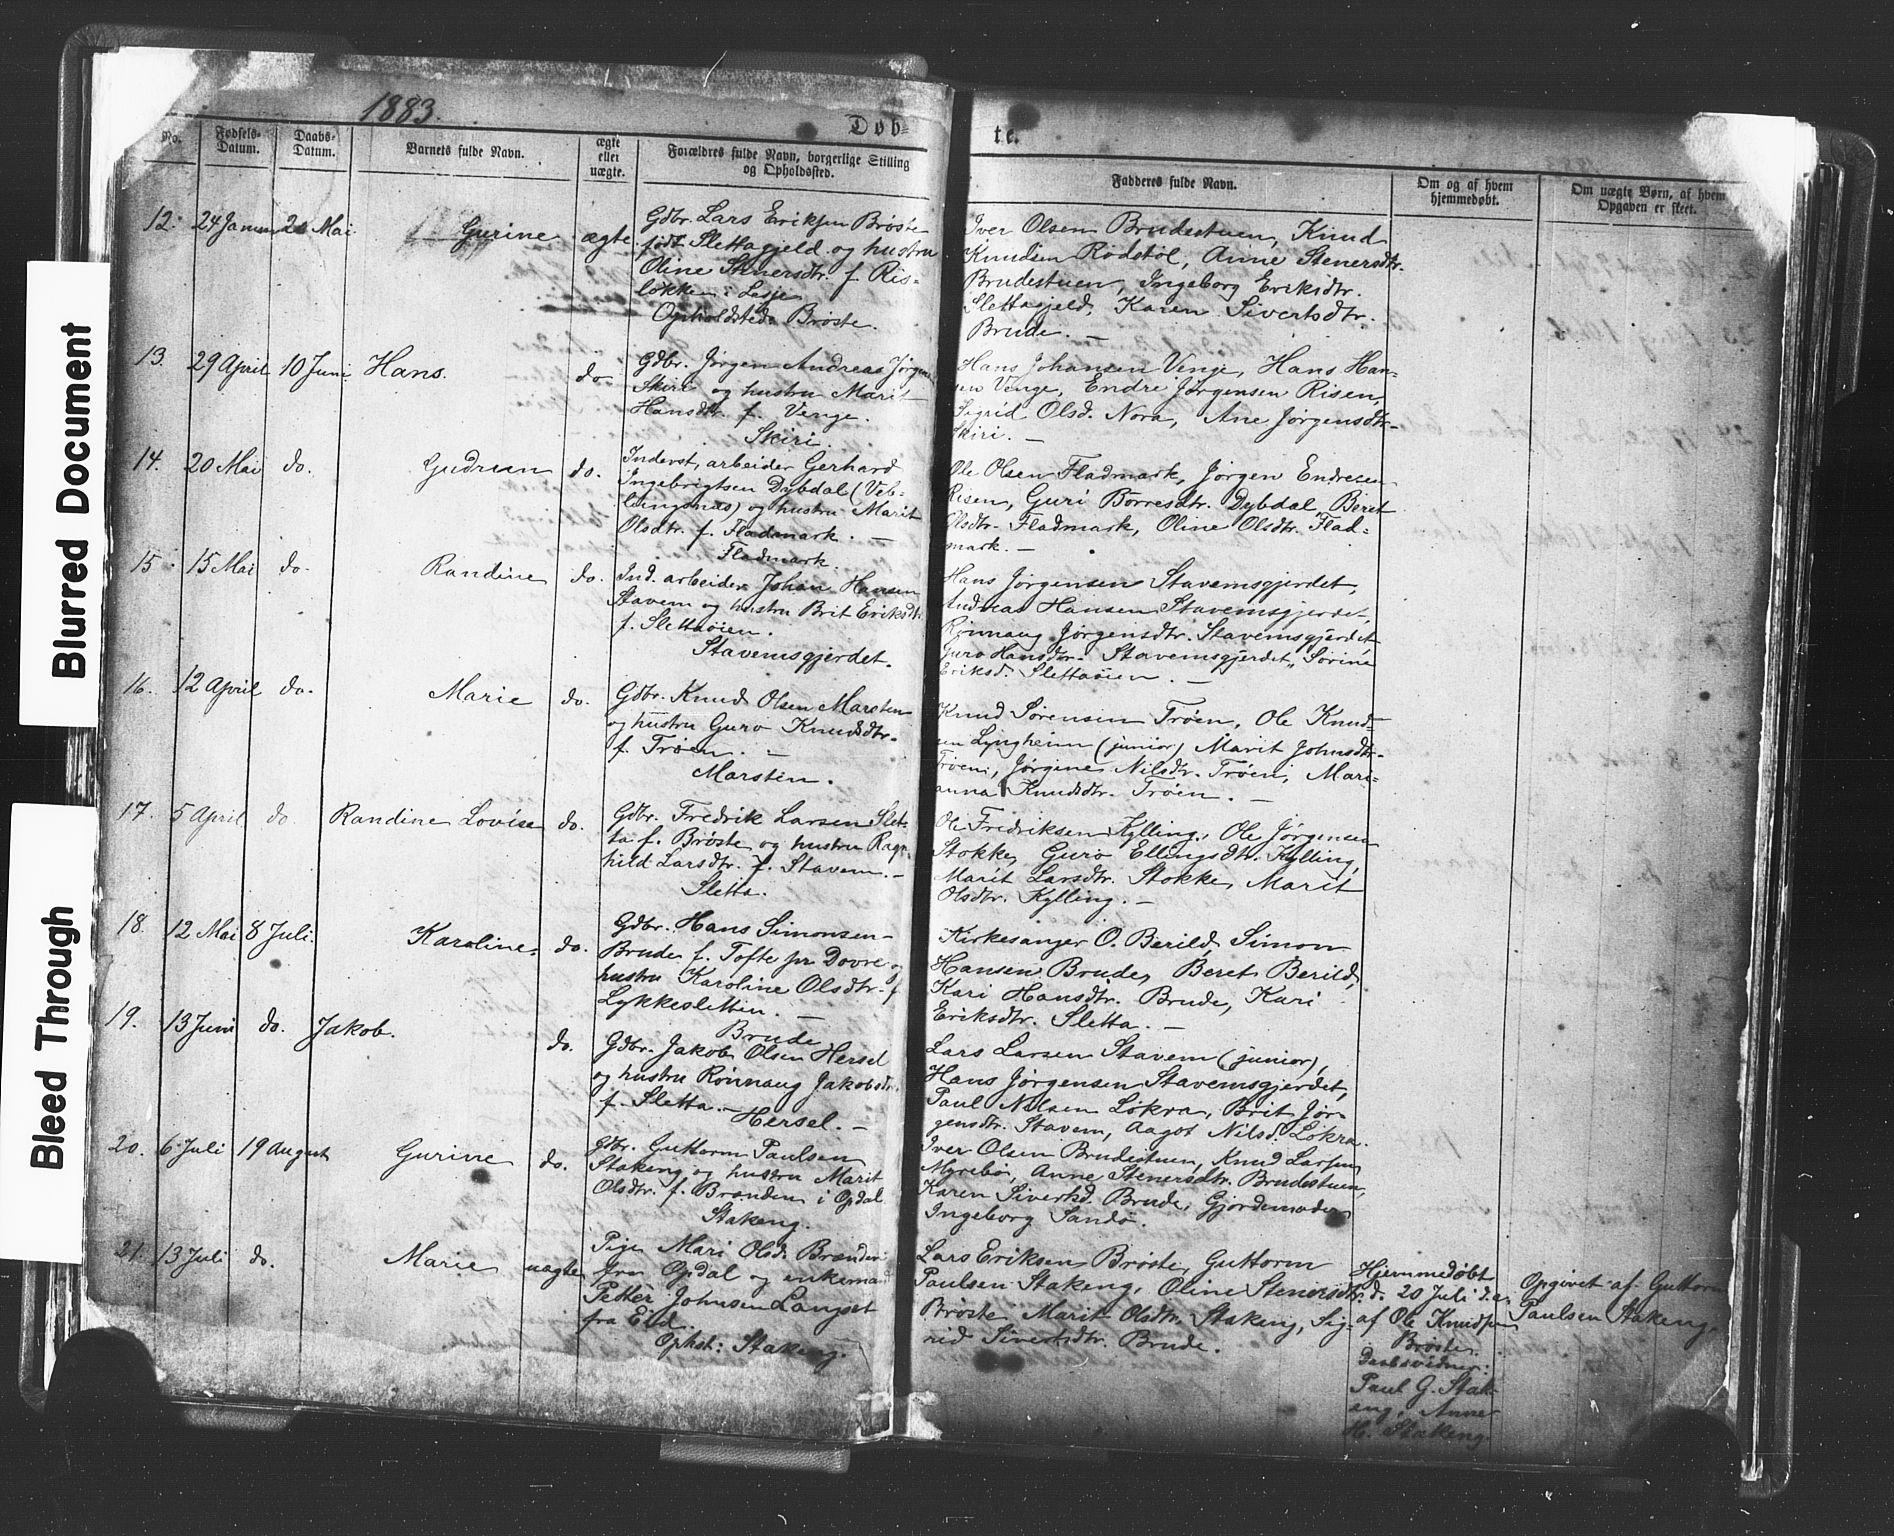 1883.
Døb=
te.
No.
Fødsels-
Datum.
Daabs-
Datum.
Barnets fulde Navn.
ægte
eller
uægte.
Forældres fulde Navn, borgerlige Stilling
og Opholdssted.
Fadderes fulde Navn.
Om og af hvem
hjemmedøbt.
Om uægte Børn, af hvem
Opgaven er skeet.
12. 24 Januar Mai Gurine ægte
Gdbr. Lars Eriksen Brøste
født Slettagjeld og hustru
Oline Stenersdtr. f. Ris-
løkken i Lesje
Opholdsted Brøste.
Iver Olsen Brudestuen, Knud
Knudsen Rødstøl, Anne Stenersdtr.
Brudestuen, Ingeborg Eriksdtr.
Slettagjeld, Karen Sivertsdtr.
Brude. —
13. 29 April 10 Juni Hans. do
Gdbr. Jørgen Andreas Jørgens
Skiri og hustru Marit
Hansdtr f. Venge.
Skiri.
Hans Johansen Venge, Hans Han-
sen Venge, Endre Jørgensen Risen,
Sigrid Olsd. Nora, Ane Jørgensdtr.
Skiri. —
14. 20 Mai do. Gudrun do.
Inderst, arbeider Gerhard
Ingebrigtsen Dybdal (Veb-
lungsnes) og hustru Marit
Olsdtr. f. Fladmark. —
Fladmark.
Ole Olsen Fladmark, Jørgen Endresen
Risen, Guri Børresdtr. Dybdal, Beret
Olsdtr. Fladmark, Oline Olsdtr. Flad-
mark. —
15 15 Mai do. Randine do.
Ind. arbeider Johan Hansen
Stavem og hustru Brit Eriksdtr.
f. Slettøien.
Stavemsgjerdet.
Hans Jørgensen Stavemsgjerdet,
Andreas Hansen Stavemsgjerdet,
Rønnaug Jørgensdtr. Stavemsgjerdet
Guro Hansdtr. Stavemsgjerdet, Sørine
Eriksd. Slettaøien. —
16. 12 April do. Marie do.
Gdbr. Knud Olsen Marsten
og hustru Guro Knudsdtr.
f. Trøen. —
Marstein.
Knud Sørensen Trøen, Ole Knud-
sen Lyngheim (junior) Marit Johnsdtr.
Trøen, Jørgine Nilsdtr. Trøen, Mari-
anna Knudsdtr. Trøen. —
17. 5 April do. Randine Lovise do.
Gdbr. Fredrik Larsen Slet-
ta f. Brøste og hustru Ragn-
hild Larsdtr. f. Stavem. —
Sletta.
Ole Fredriksen Kylling, Ole Jørgensen
Stokke, Guro Ellingsdtr. Kylling,
Marit Larsdtr. Stokke, Marit
Olsdtr. Kylling. —
18. 12 Mai 8 Juli. Karoline. do.
Gdbr. Hans Simonsen
Brude f. Tofte pr Dovre og
hustru Karoline Olsdtr. f
Lykkesletten. —
Brude
Kirkesanger O. Berild, Simon
Hansen Brude, Beret Berild,
Kari Hansdtr. Brude, Kari
Eriksdtr. Sletta. —
19. 13 Juni do. Jakob. do.
Gdbr. Jakob Olsen Hersel
og hustru Rønnaug Jakobsdtr.
f. Sletta. —
Hersel. —
Lars Larsen Stavem (junior),
Hans Jørgensen Stavemsgjerdet,
Paul Nilsen Løkra, Brit Jør-
gensdtr. Stavem, Aagot Nilsd. Løkra.
20. 6 Juli 19 August Gurine do.
Gdbr. Guttorm Paulsen
Stakeng og hustru Marit
Olsdtr. f. Brænden i Opdal
Stakeng.
Iver Olsen Brudestuen, Knud Larsen
Myrebø, Anne Stenersdtr. Brudestuen,
Karen Sivertsd. Brude, Gjordemoder
Ingeborg Sandø.
21. 13 Juli do. Marie uægte
Pige Mari Olsd. Brænden
fra Opdal og enkemand
Petter Johnsen Langset
fra Eid.
Opkst: Stakeng.
Lars Eriksen Brøste, Guttorm
Paulsen Stakeng, Oline Stenersdtr.
Brøste Marit Olsdtr. Stakeng, Sig-
rid Sivertsdtr. Brude.
Hjemmedøbt
d. 20 Juli d.a.
af Ole Knudsen
Brøste.
Daabsvidner:
Paul G. Stak-
eng, Anne
H. Stakeng.
Opgivet af Guttorm
Paulsen Stakeng.
Blurred Document
Bleed Through